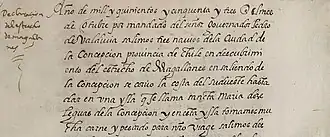 Declaracion
del estrecho
de magallanes
Año de mil y quinientos y cinquenta y tres Salimos
de Otubre por mandado del señor Governador Pedro
de Valdivia salimos tres navios de la Ciudad de
la Concepcion provincia de Chile en descubrimi
ento del estrecho de Magallanes en saliendo de
la Concepcion se corrio la costa del sudueste hasta
dar en una ysla q se llama sancta Maria doze
leguas de la Concepcion y en esta ysla tomamos mu
cha carne y pescado para nro viage salimos de